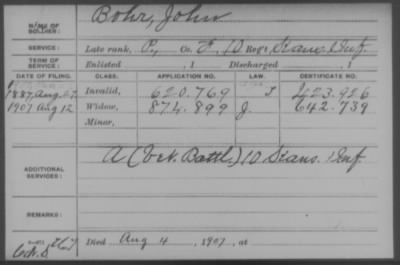 NAME OF SOLDIER: Bohr, John
SERVICE: Late rank, P, Co. E, 10 Reg't Kans. Inf.
TERM OF SERVICE: Enlisted , 1 Discharged , 1
DATE OF FILING. CLASS. APPLICATION NO. LAW. CERTIFICATE NO.
1887, Aug. Invalid, 620.769 423.926
1907 Aug 12 Widow, 874.899 J. 642.739
Minor,
ADDITIONAL SERVICES: A (Vet. Battl.) 10 Kans. Inf.
REMARKS:
Died Aug 4, 1907, at